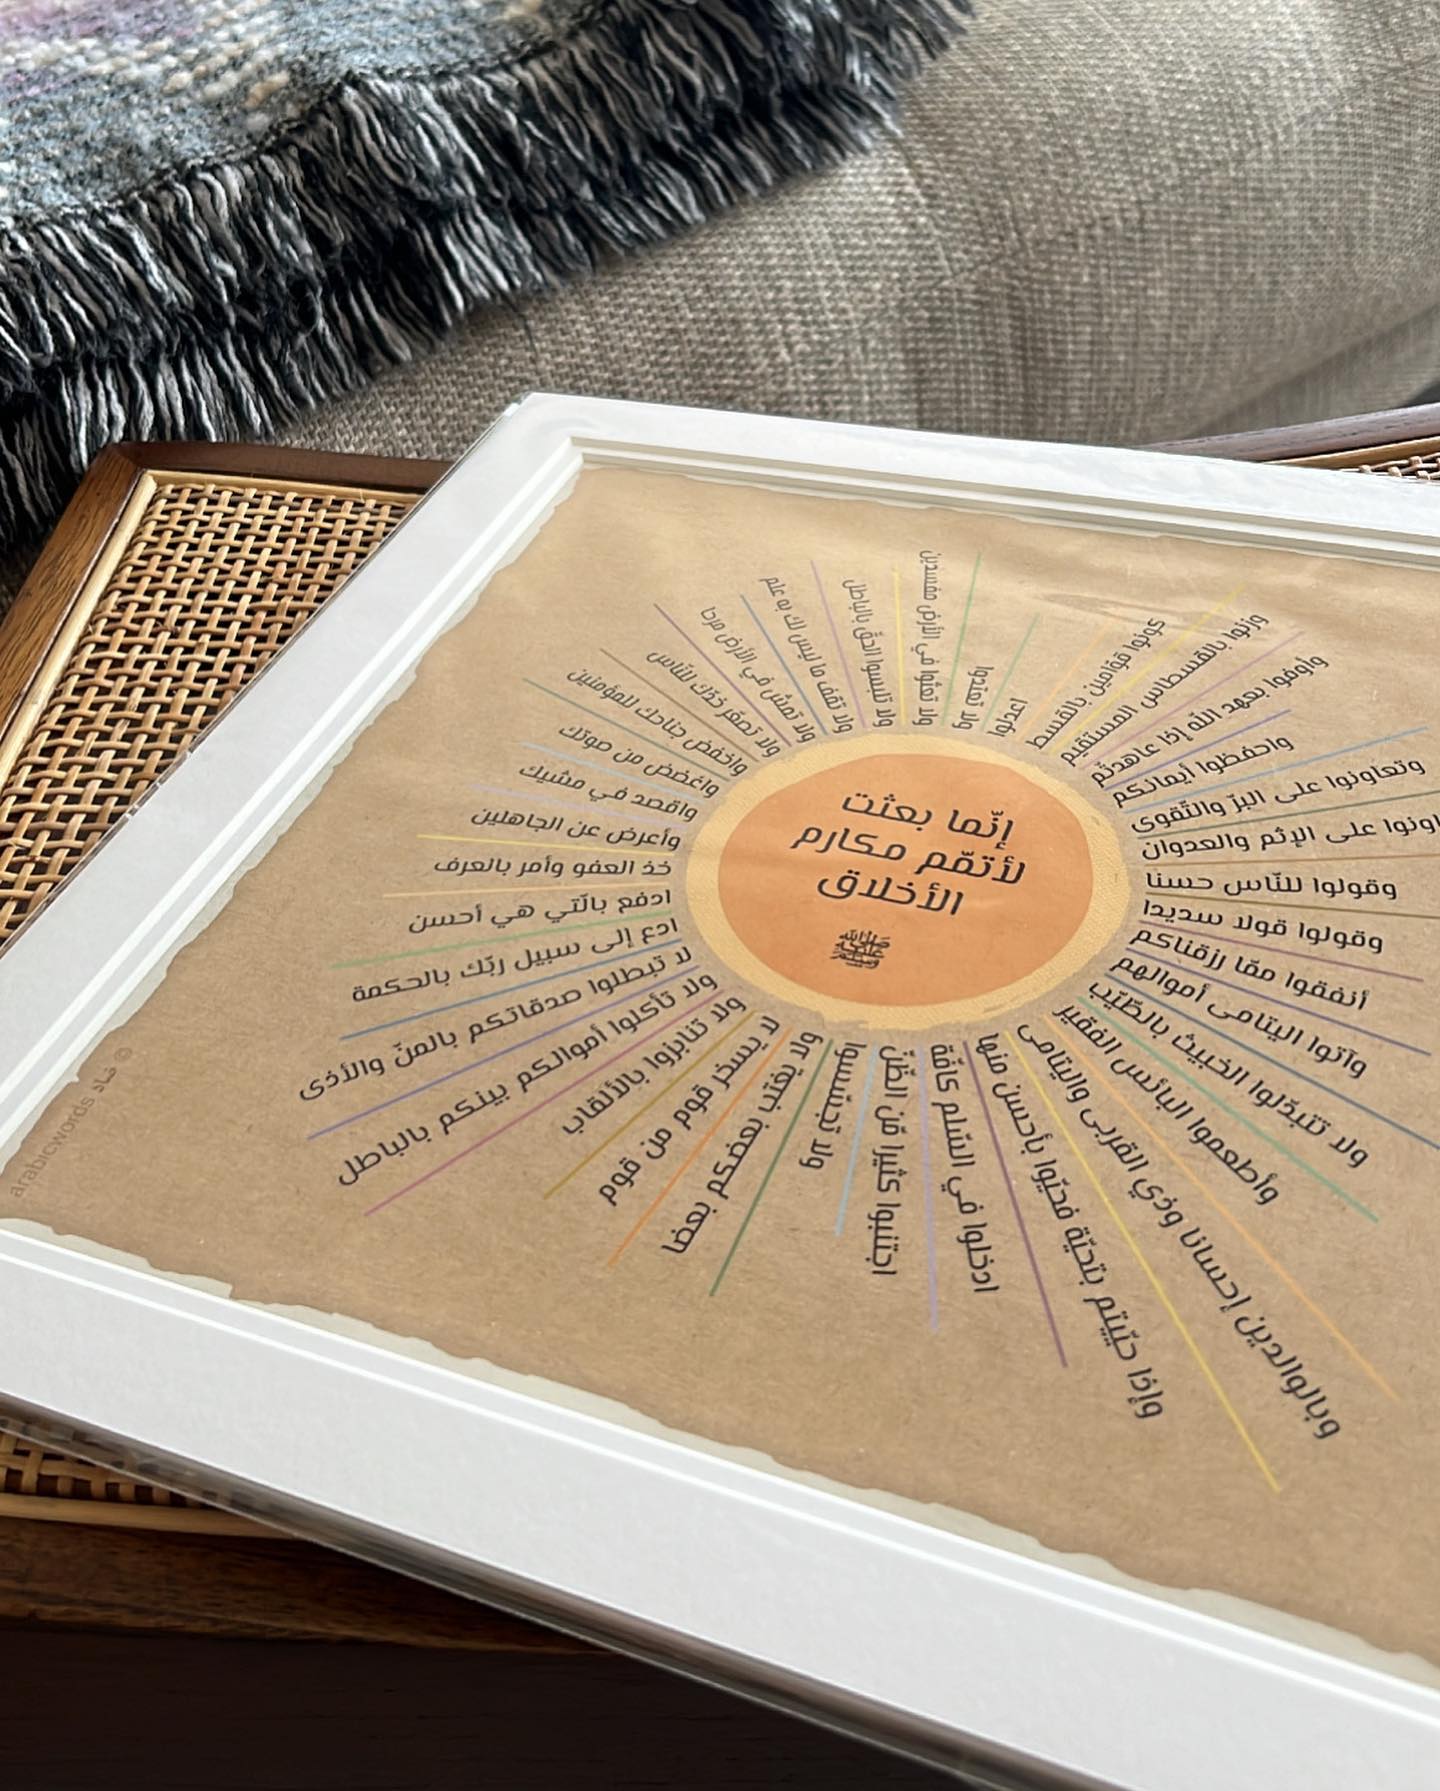 إنّما بعثت
لأتمّم مكارم
الأخلاق
ﷺ
اعدلوا
كونوا قوّامين بالقسط
وزنوا بالقسطاس المستقيم
وأوفوا بعهد الله إذا عاهدتّم
واحفظوا أيمانكم
وتعاونوا على البرّ والتّقوى
على الإثم والعدوان
وقولوا للنّاس حسنا
وقولوا قولا سديدا
أنفقوا ممّا رزقناكم
وآتوا اليتامى أموالهم
ولا تتبدّلوا الخبيث بالطّيّب
وأطعموا البائس الفقير
وبالوالدين إحسانا وذي القربى واليتامى
وإذا حيّيتم بتحيّة فحيّوا بأحسن منها
ادخلوا في السّلم كافّة
اجتنبوا كثيرا مّن الظّنّ
ولا تجسّسوا
ولا يغتب بعضكم بعضا
لا يسخر قوم من قوم
ولا تنابزوا بالألقاب
ولا تأكلوا أموالكم بينكم بالباطل
لا تبطلوا صدقاتكم بالمنّ والأذى
ادع إلى سبيل ربّك بالحكمة
ادفع بالّتي هي أحسن
خذ العفو وأمر بالعرف
وأعرض عن الجاهلين
واقصد في مشيك
واغضض من صوتك
واخفض جناحك للمؤمنين
ولا تصعّر خدّك للنّاس
ولا تمش في الأرض مرحا
ولا تقف ما ليس لك به علم
ولا تلبسوا الحقّ بالباطل
ولا تعثوا في الأرض مفسدين
ولا تعتدوا
arabicwords ضاد ©